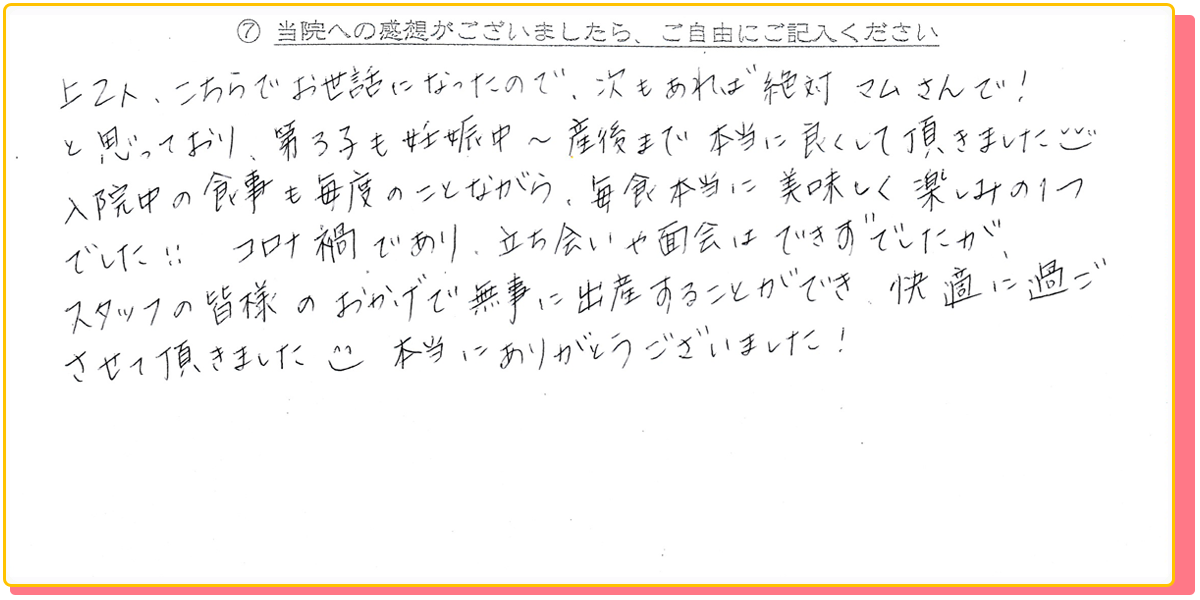 ⑦ 当院への感想がございましたら、ご自由にご記入ください
上2人、こちらでお世話になったので、次もあれば絶対 マムさんで!
と思っており、第3子も妊娠中~産後まで 本当に良くして頂きました
入院中の食事も毎度のことながら、毎食本当に美味しく楽しみの1つ
でした!! コロナ禍であり、立ち会いや面会はできずでしたが
スタッフの皆様のおかげで無事に出産することができ、快適に過ご
させて頂きました 本当にありがとうございました!